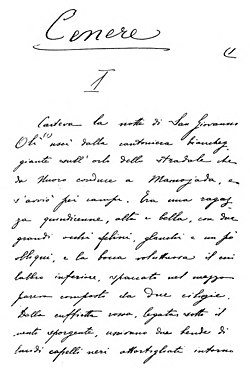 Cenere
I
Cadeva la notte di San Giovanni
Olì (1) uscì dalla cantoniera biancheg
giante sull'orlo dello stradale che
da Nuoro conduce a Mamojada, e
s'avviò pei campi. Era una ragaz
za quindicenne, alta e bella, con due
grandi occhi felini, glauchi e un po'
obliqui, e la bocca voluttuosa il cui
labbro inferiore, spaccato nel mezzo
pareva composto da due ciliegie.
Dalla cuffietta rossa, legata sotto il
mento sporgente, uscivano due bende di
lucidi capelli neri attortigliati intorno